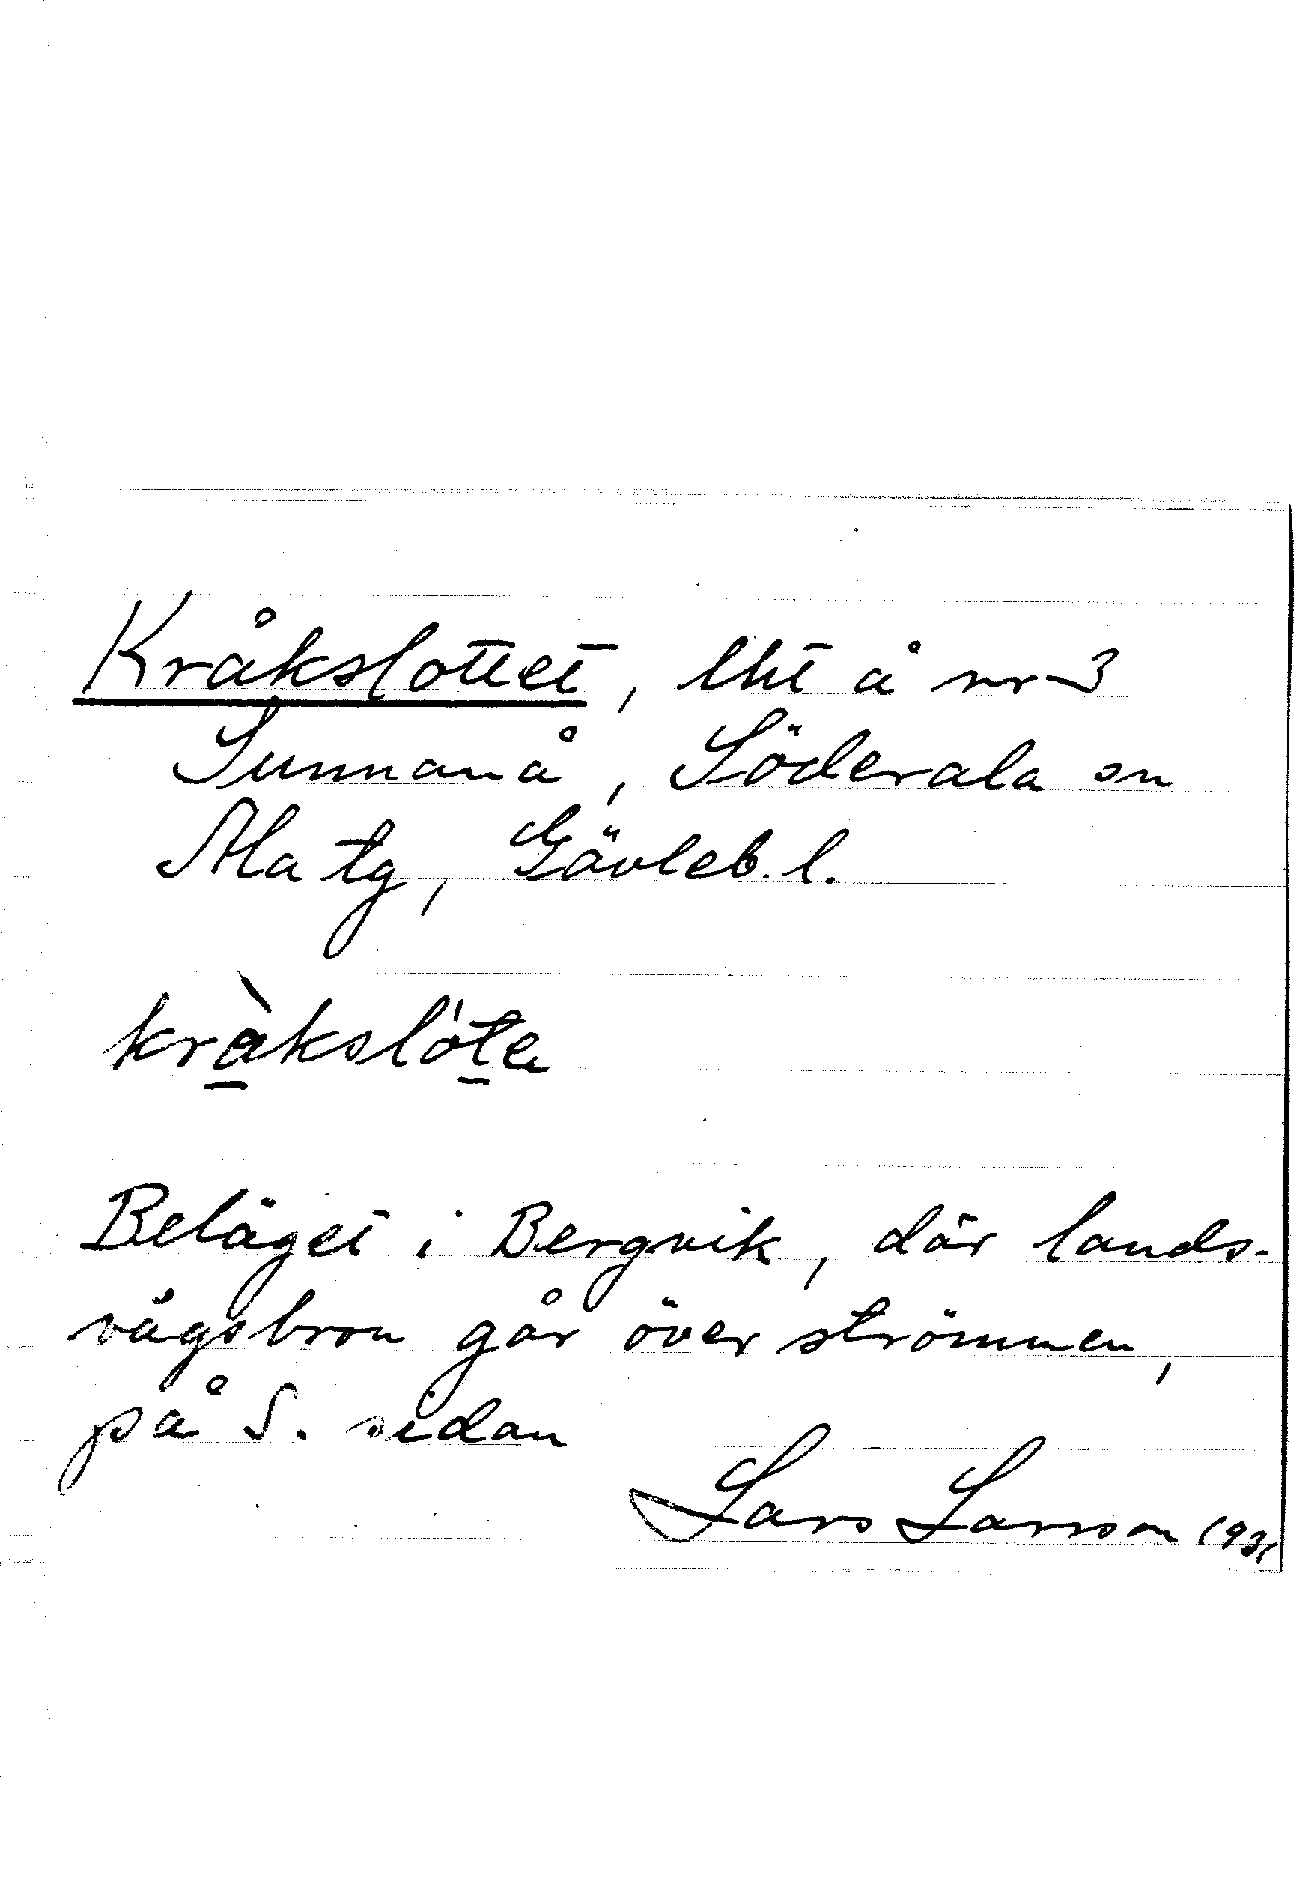 Kråkslottet, lht å nr 3
Sunnanå, Söderala sn
Ala tg, Gävleb. l.
kràkslóte
Beläget i Bergvik, där lands-
vägsbron går över strömmen,
på S. sidan
Lars Larsson